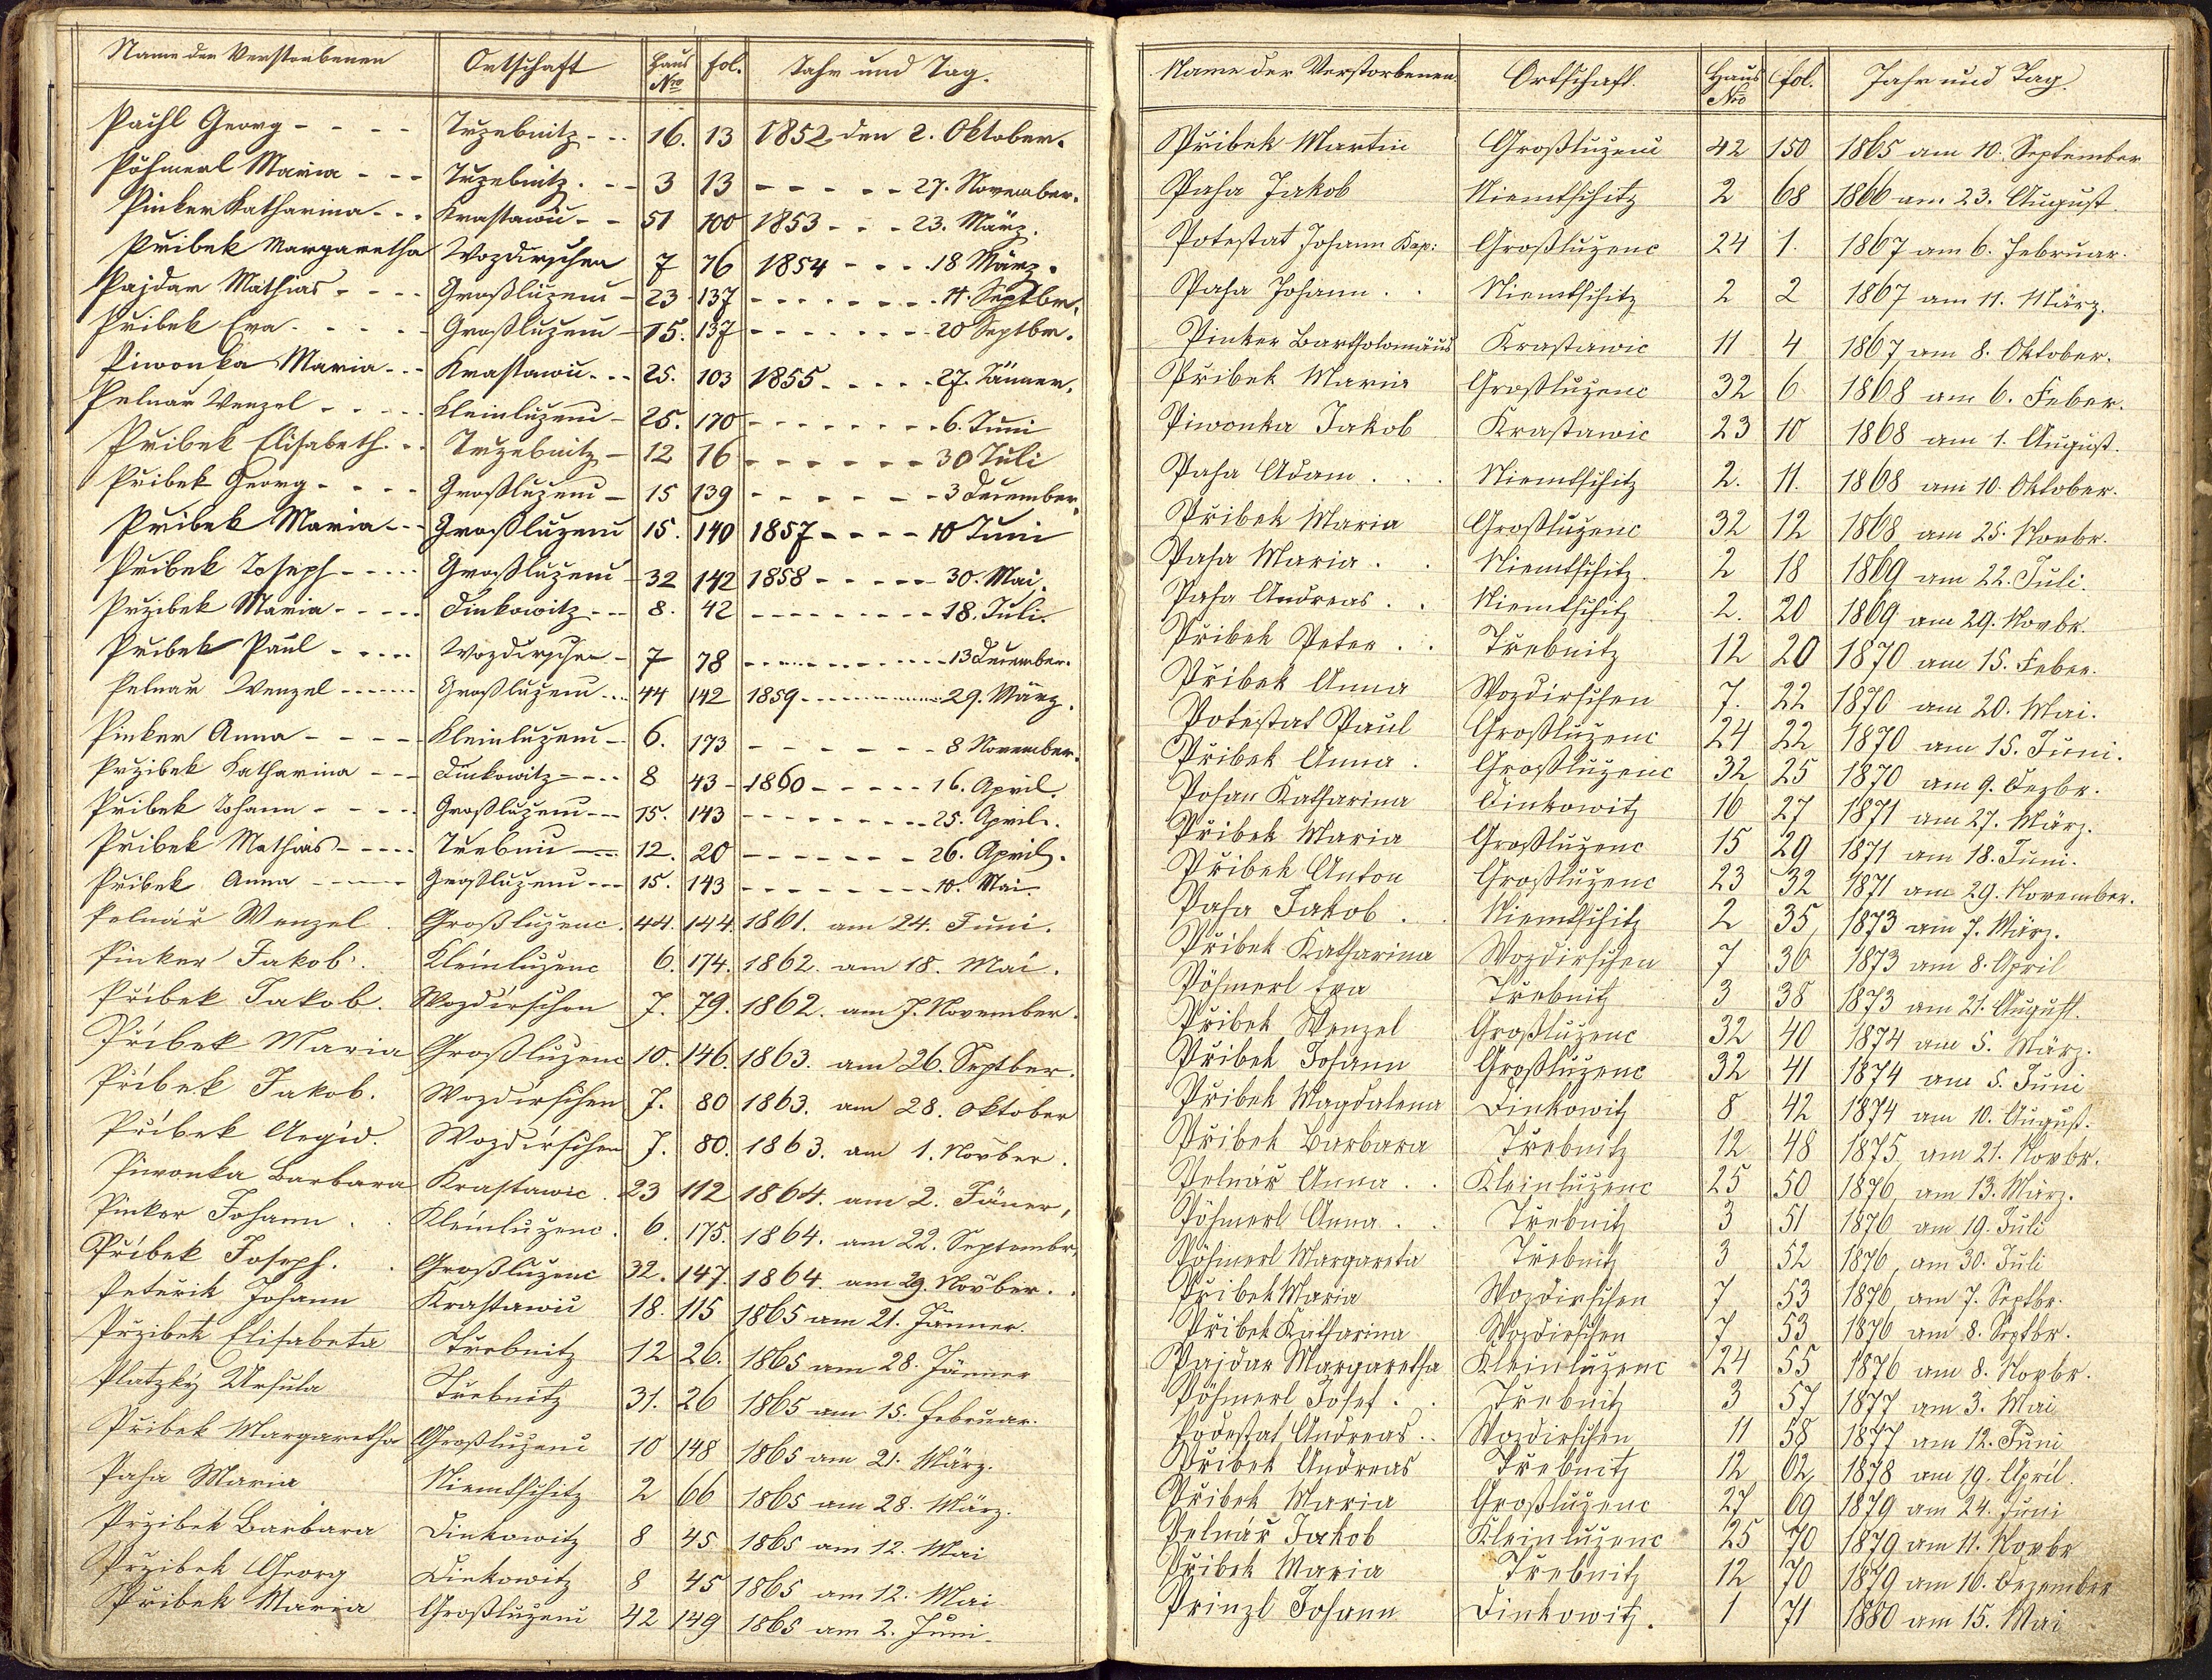 Name der Verstorbenen Ortschaft Haus Nro fol. Jahr und Tag.
Pachl Georg - - - - Trzebnitz - - - 16. 13 1852 den 2. Oktober.
Pöhmerl Maria - - - Trzebnitz. - - 3 13 - - - - - 27. November.
Pinker Katharina - - - Krastawic - - 51 100 1853 - - - 23. März.
Pribek Margaretha Wozdirschen 7 76 1854 - - - 18 März.
Pajdar Mathias - - - - Großluzenc - 23 137 - - - - - - - 14. Septbr.
Pribek Eva - - - - - Großluzenc - 15. 137 - - - - - - - 20 Septbr.
Piwonka Maria - - - Krastawic - - - 25. 103 1855 - - - - - 27. Jänner.
Pelnař Wenzel - - - - Kleinluzenc - 25. 170 - - - - - - - - 6. Juni
Pribek Elisabeth - - Trzebnitz - 12 16 - - - - - - 30 Juli
Pribek Georg - - - - Großluzenc - 15 139 - - - - - - 3 December.
Pribek Maria - - - Großluzenc 15. 140 1857 - - - - 10 Juni
Pribek Joseph - - - - - Großluzenc - 32 142 1858 - - - - - 30. Mai.
Przibek Maria - - - - - Dinkowitz - - - 8. 42 - - - - - - - - 18. Juli.
Pribek Paul - - - - Wozdirschen - 7 78 - - - - - - - - 13 December.
Pelnař Wenzel - - - - - Großluzenc - - - 44 142 1859 - - - - - - - 29. März.
Pinker Anna - - - - Kleinluzenc - - 6. 173 - - - - - - - 8 November.
Przibek Katharina - - - Dinkowitz - - - - 8 43 - 1860 - - - - - 16. April.
Pribek Johann - - - - Großluzenc - - - 15. 143 - - - - - - - - 25. April.
Pribek Mathias - - - - - Trebnic - - 12. 20 - - - - - - - 26. April.
Pribek Anna - - - - Großluzenc - - - 15. 143 - - - - - - - - 10. Mai.
Pelnář Wenzel. Großluženc. 44. 144. 1861. am 24. Juni.
Pinker Jakob. Kleinluženc 6. 174. 1862. am 18. Mai.
Přibek Jakob. Wozdirschen 7. 79. 1862. am 7. November.
Přibek Maria Großluženc 10. 146. 1863. am 26. Septber.
Přibek Jakob. Wozdirschen 7. 80 1863. am 28. Oktober
Přibek Aegid. Wozdirschen 7. 80. 1863. am 1. Novber.
Piwonka Barbara Krastawic. 23 112 1864. am 2. Jäner,
Pinker Johann. Kleinluženc. 6. 175. 1864. am 22. Septembr.
Přibek Joseph. Großluženc 32. 147. 1864. am 29. Novber.
Peteřik Johann Krastawic 18. 115 1865 am 21. Jänner.
Przibek Elisabeta Třebnitz 12 26. 1865 am 28. Jänner
Platzky Ursula Třebnitz 31. 26 1865 am 15. Februar.
Přibek Margaretha Großluženc 10 148 1865 am 21. März.
Paha Maria Niemtschitz 2 66 1865 am 28. März.
Przibek Barbara Dinkowitz 8 45 1865 am 12. Mai
Przibek Georg Dinkowitz 8 45 1865 am 12. Mai
Přibek Maria Großluženc 42 149 1865 am 2. Juni.
Name der Verstorbenen Ortschaft. Haus Nro fol. Jahr und Tag.
Přibek Martin Großluženc 42 150 1865 am 10. September
Paha Jakob Niemtschitz 2 68 1866 am 23. August.
Potestat Johann Kap: Großluženc 24 1. 1867 am 6. Februar.
Paha Johann. . Niemtschitz 2 2 1867 am 11. März.
Pinker Bartholomäus Krastawic 11 4 1867 am 8. Oktober.
Přibek Maria Großluženc 32 6 1868 am 6. Feber.
Piwonka Jakob Krastawic 23 10 1868 am 1. August.
Paha Adam . . . Niemtschitz 2. 11. 1868 am 10. Oktober.
Přibek Maria Großluženc 32 12 1868 am 25. Novbr.
Paha Maria . . Niemtschitz. 2 18 1869 am 22. Juli.
Paha Andreas . . Niemtschitz 2. 20 1869 am 29. Novbr.
Přibek Peter . . Třebnitz 12 20 1870 am 15. Feber.
Přibek Anna Wozdirschen 7. 22 1870 am 20. Mai.
Potestat Paul Großluženc 24 22 1870 am 15. Juni.
Přibek Anna . Großluženc 32 25 1870 am 9. Dezbr.
Pohan Katharina Dinkowitz 16 27 1871 am 27. März.
Přibek Maria Großluženc 15 29 1871 am 18. Juni.
Přibek Anton Großluženc 23 32 1871 am 29. November.
Paha Jakob . . Niemtschitz 2 35 1873 am 7. März.
Přibek Katharina Wozdirschen 7 36 1873 am 8. April
Pöhmerl Eva Třebnitz 3 38 1873 am 21. August.
Přibek Wenzel Großluženc 32 40 1874 am 5. März.
Přibek Johann Großluženc 32 41 1874 am 5. Juni
Přibek Magdalena Dinkowitz 8 42 1874 am 10. August.
Přibek Barbara Třebnitz 12 48 1875 am 21. Novbr.
Pelnář Anna . . Kleinluženc 25 50 1876 am 13. März.
Pöhmerl Anna . . Třebnitz 3 51 1876 am 19. Juli
Pöhmerl Margareta Třebnitz 3 52 1876 am 30. Juli
Přibek Maria Wozdirschen 7 53 1876 am 7. Septbr.
Přibek Katharina Wozdirschen 7 53 1876 am 8. Septbr.
Pajdar Margaretha Kleinluženc 24 55 1876 am 8. Novbr.
Pöhmerl Josef . . Třebnitz 3 57 1877 am 3. Mai
Podestat Andreas . . Wozdirschen 11 58 1877 am 12. Juni
Přibek Andreas Třebnitz 12 62 1878 am 19. April.
Přibek Maria Großluženc 27 69 1879 am 24. Juni
Pelnář Jakob Kleinluženc 25 70 1879 am 11. Novbr
Přibek Maria Třebnitz 12 70 1879 am 16. Dezember
Prinzl Johann Dinkowitz. 1 71 1880 am 15. Mai